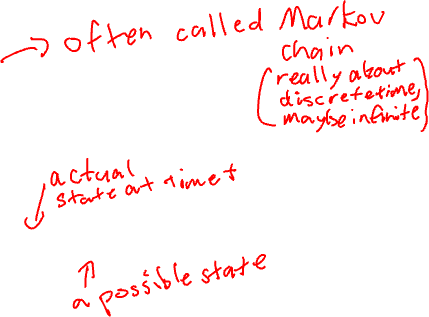 → often called Markov
chain
(really about
discrete time,
maybe infinite)
actual
state at time t
a possible state